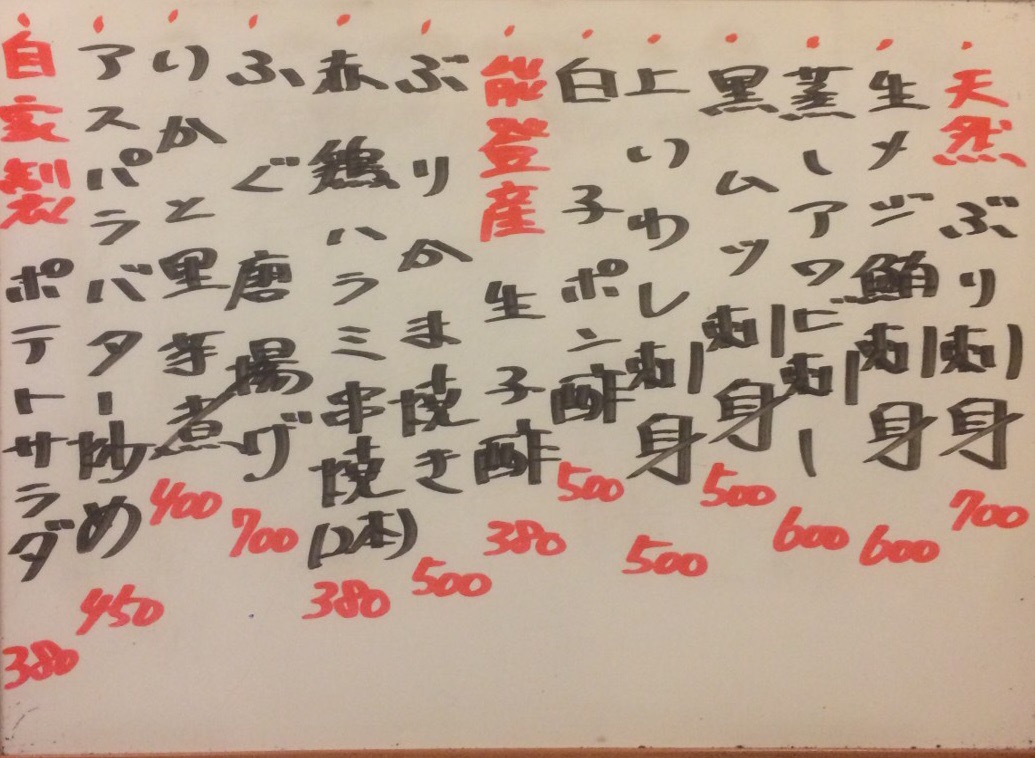 天然ぶり刺身 700
生メジ鮪刺身 600
蒸しアワビ刺し 600
黒ムツ刺身 500
上いわし刺身 500
白子ポン酢 500
能登産生子酢 380
ぶりかま焼き 500
赤鶏ハラミ串焼(2本) 380
ふぐ唐揚げ 700
いかと里芋煮 400
アスパラバター炒め 450
自家製ポテトサラダ 380